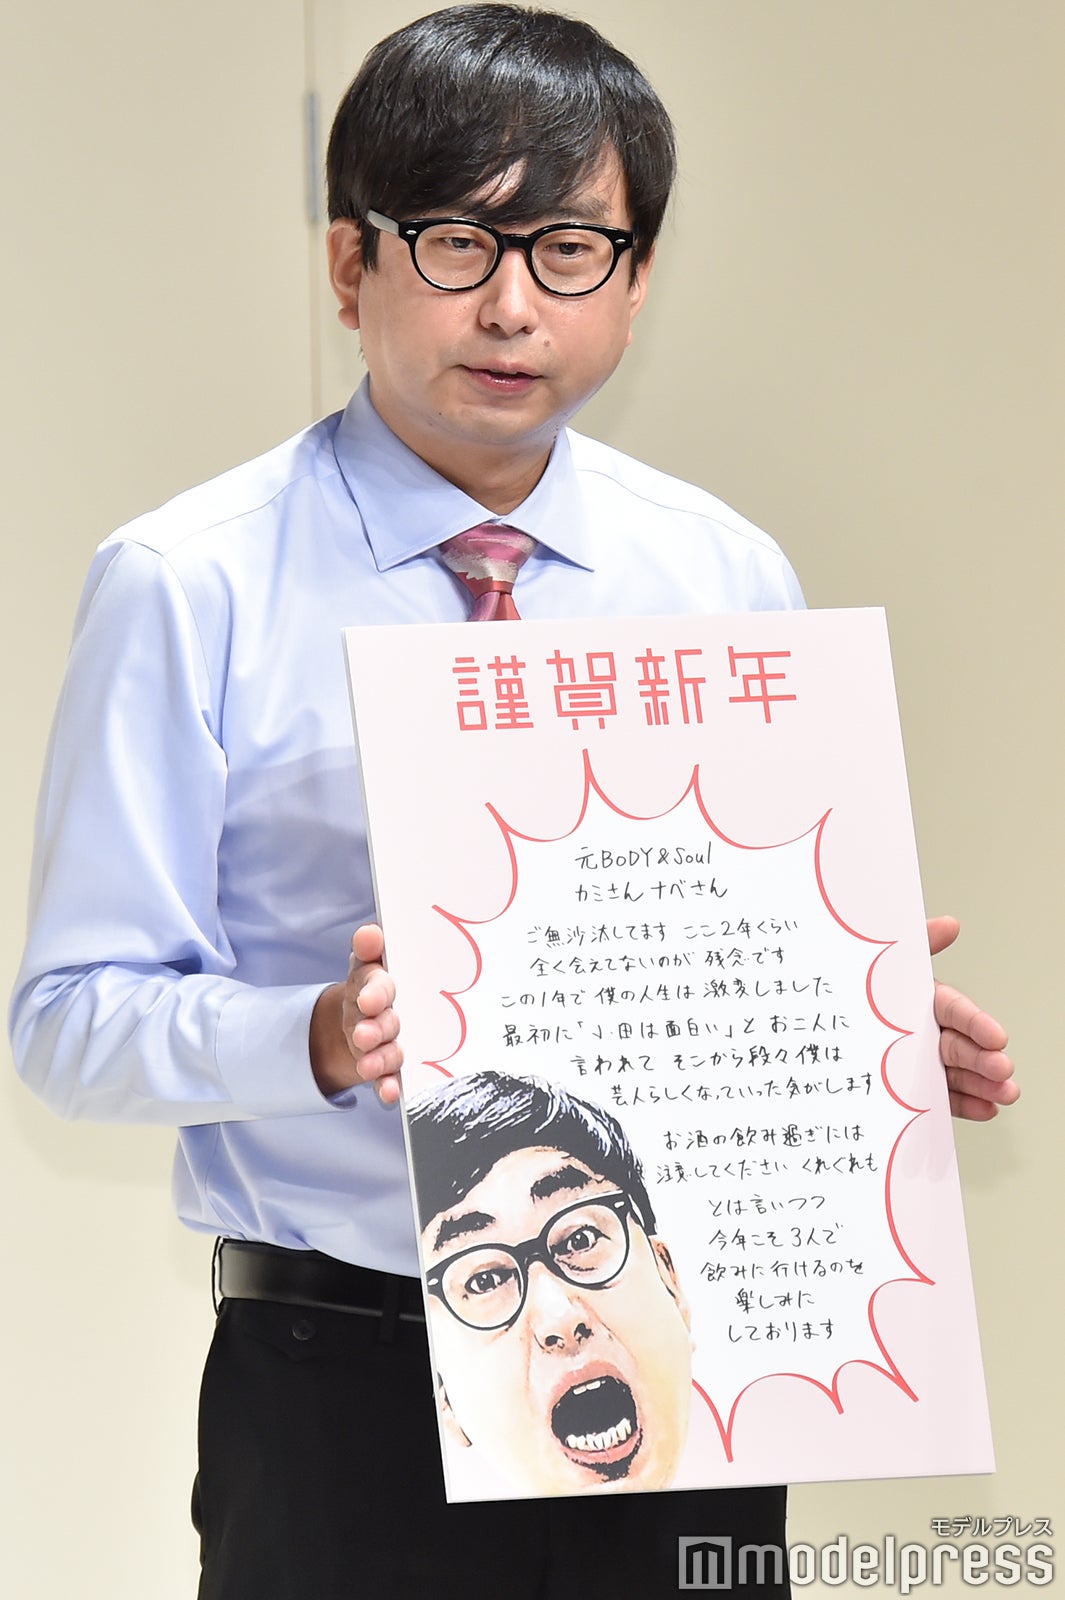 謹賀新年
元BODY&Soul
カミさん ナベさん
ご無沙汰してます ここ2年くらい
全く会えてないのが 残念です
この1年で 僕の人生は 激変しました
最初に「小田は面白い」と お二人に
言われて そこから段々 僕は
芸人らしくなっていった気がします
お酒の飲み過ぎには
注意してください くれぐれも
とは言いつつ
今年こそ 3人で
飲みに行けるのを
楽しみに
しております
モデルプレス
modelpress